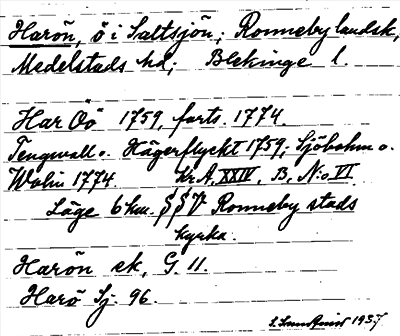 Harön, ö i Saltsjön; Ronneby landsk,
Medelstads hd; Blekinge l.
Har Öö 1759, forts. 1774.
Tengwall o. Hägerflyckt 1759; Sjöbohm o.
Wolin 1774. Kr. A, XXIV, B, N:o VI
Läge 6 km. SSV Ronneby stads
kyrka.
Harön ek, G. 11.
Harö Sj. 96.
1937